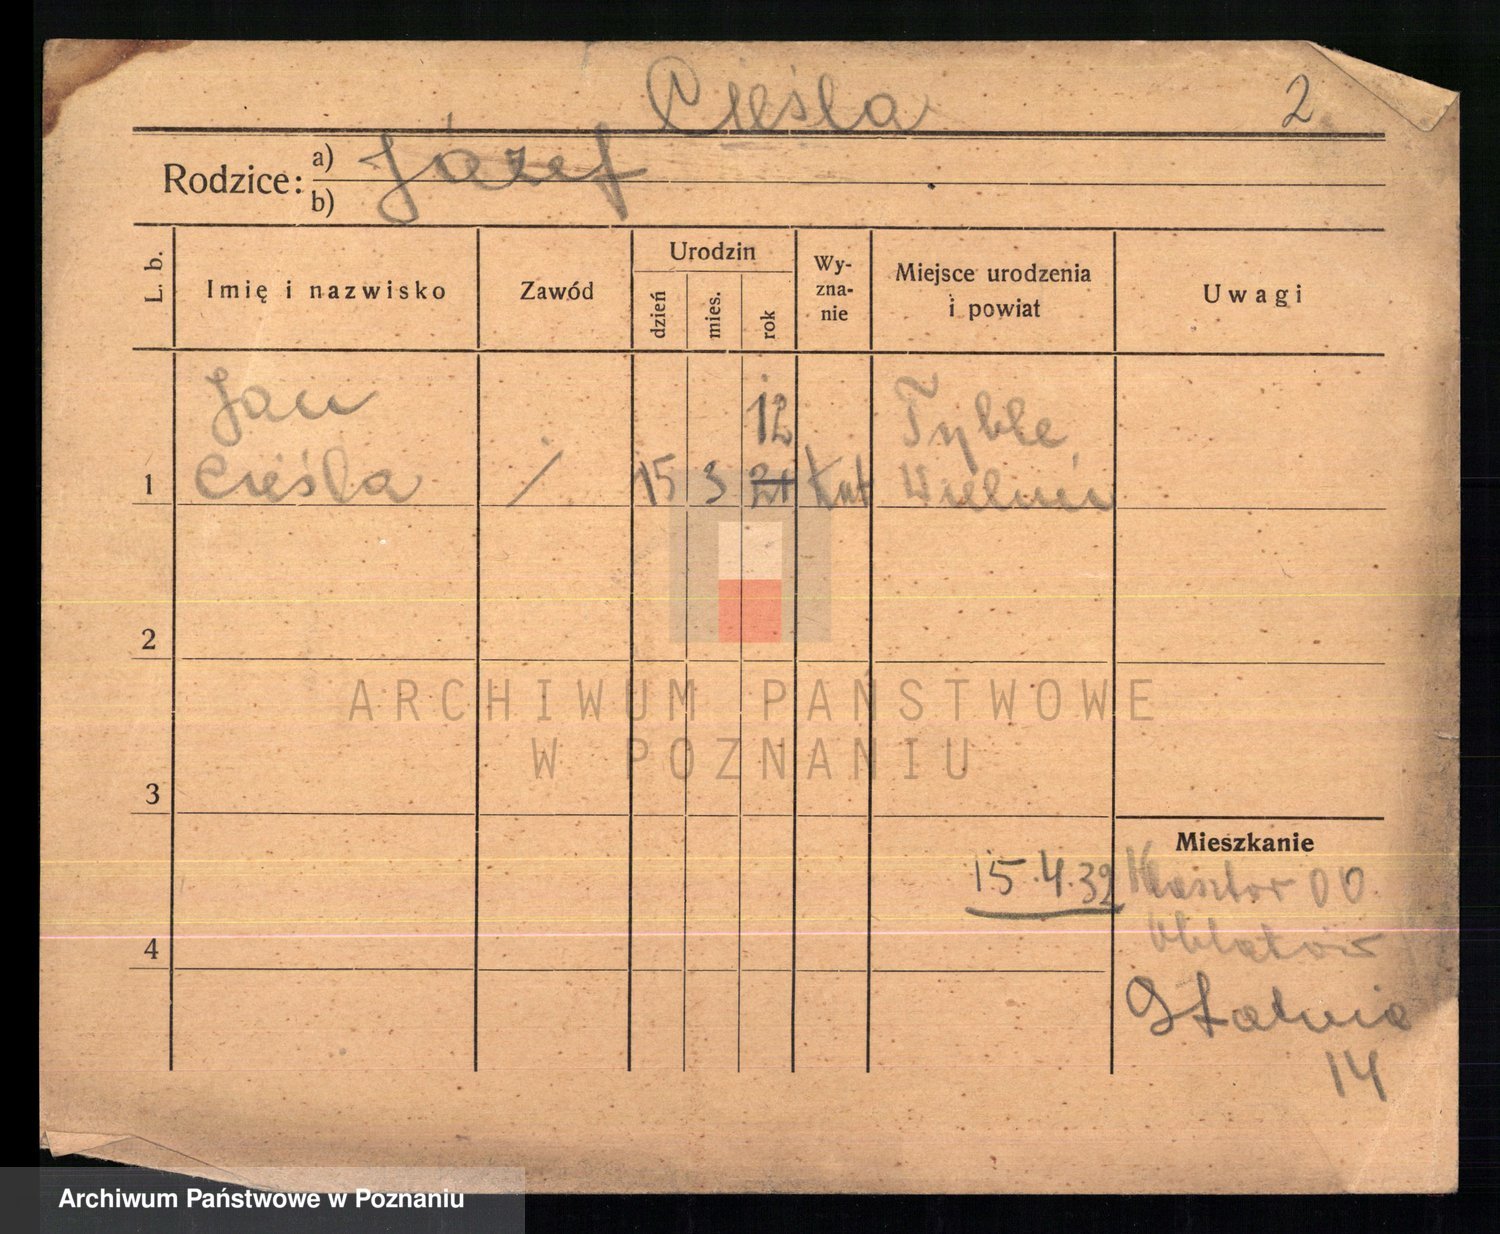 Cieśla 2
Rodzice: a) Józef
b)
L. b. Imię i nazwisko Zawód Urodzin dzień mies. rok Wy-zna-nie Miejsce urodzenia i powiat Uwagi
Jan 12
1 Cieśla / 15 3 21 kat Wieluń
2
3
Mieszkanie
15.4.32 Klasztor OO
4 Oblatów
Ostatnia
14
ARCHIWUM PAŃSTWOWE
W POZNANIU
Archiwum Państwowe w Poznaniu